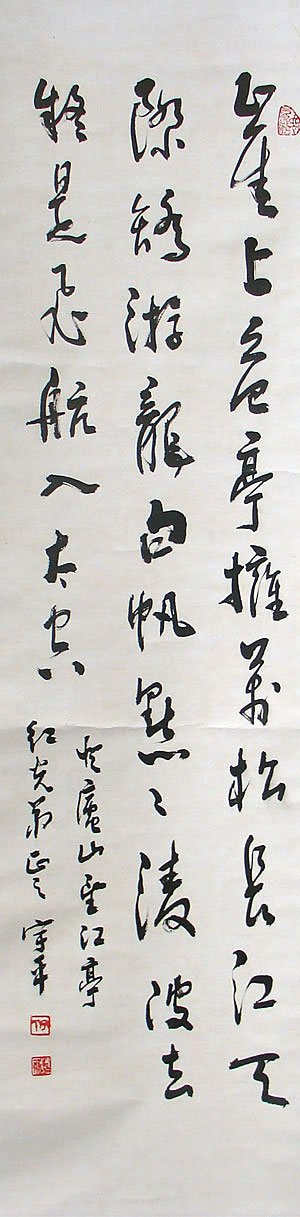 崖上危亭擁萬松長江天
際矯游龍白帆點々淩波去
疑是飛航入太空
登廬山望江亭
紅克弟正之 宇平